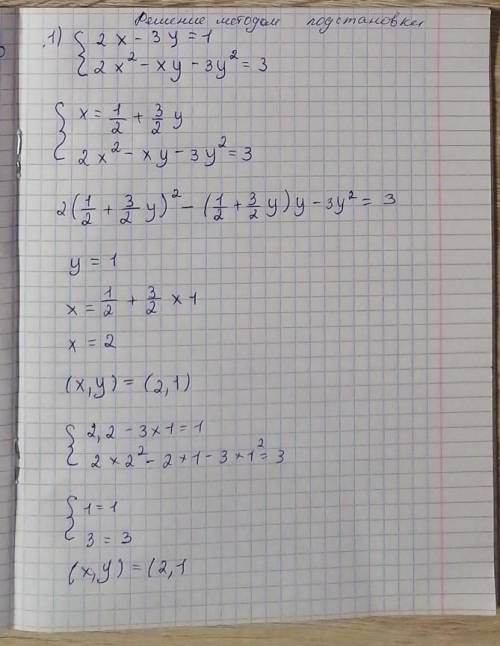 Решение методом подстановки
1) { 2x - 3y = 1
2x² - xy - 3y² = 3
{ x = 1/2 + 3/2 y
2x² - xy - 3y² = 3
2(1/2 + 3/2 y)² - (1/2 + 3/2 y)y - 3y² = 3
y = 1
x = 1/2 + 3/2 × 1
x = 2
(x,y) = (2,1)
{ 2,2 - 3×1 = 1
2×2² - 2×1 - 3×1² = 3
{ 1 = 1
3 = 3
(x,y) = (2,1